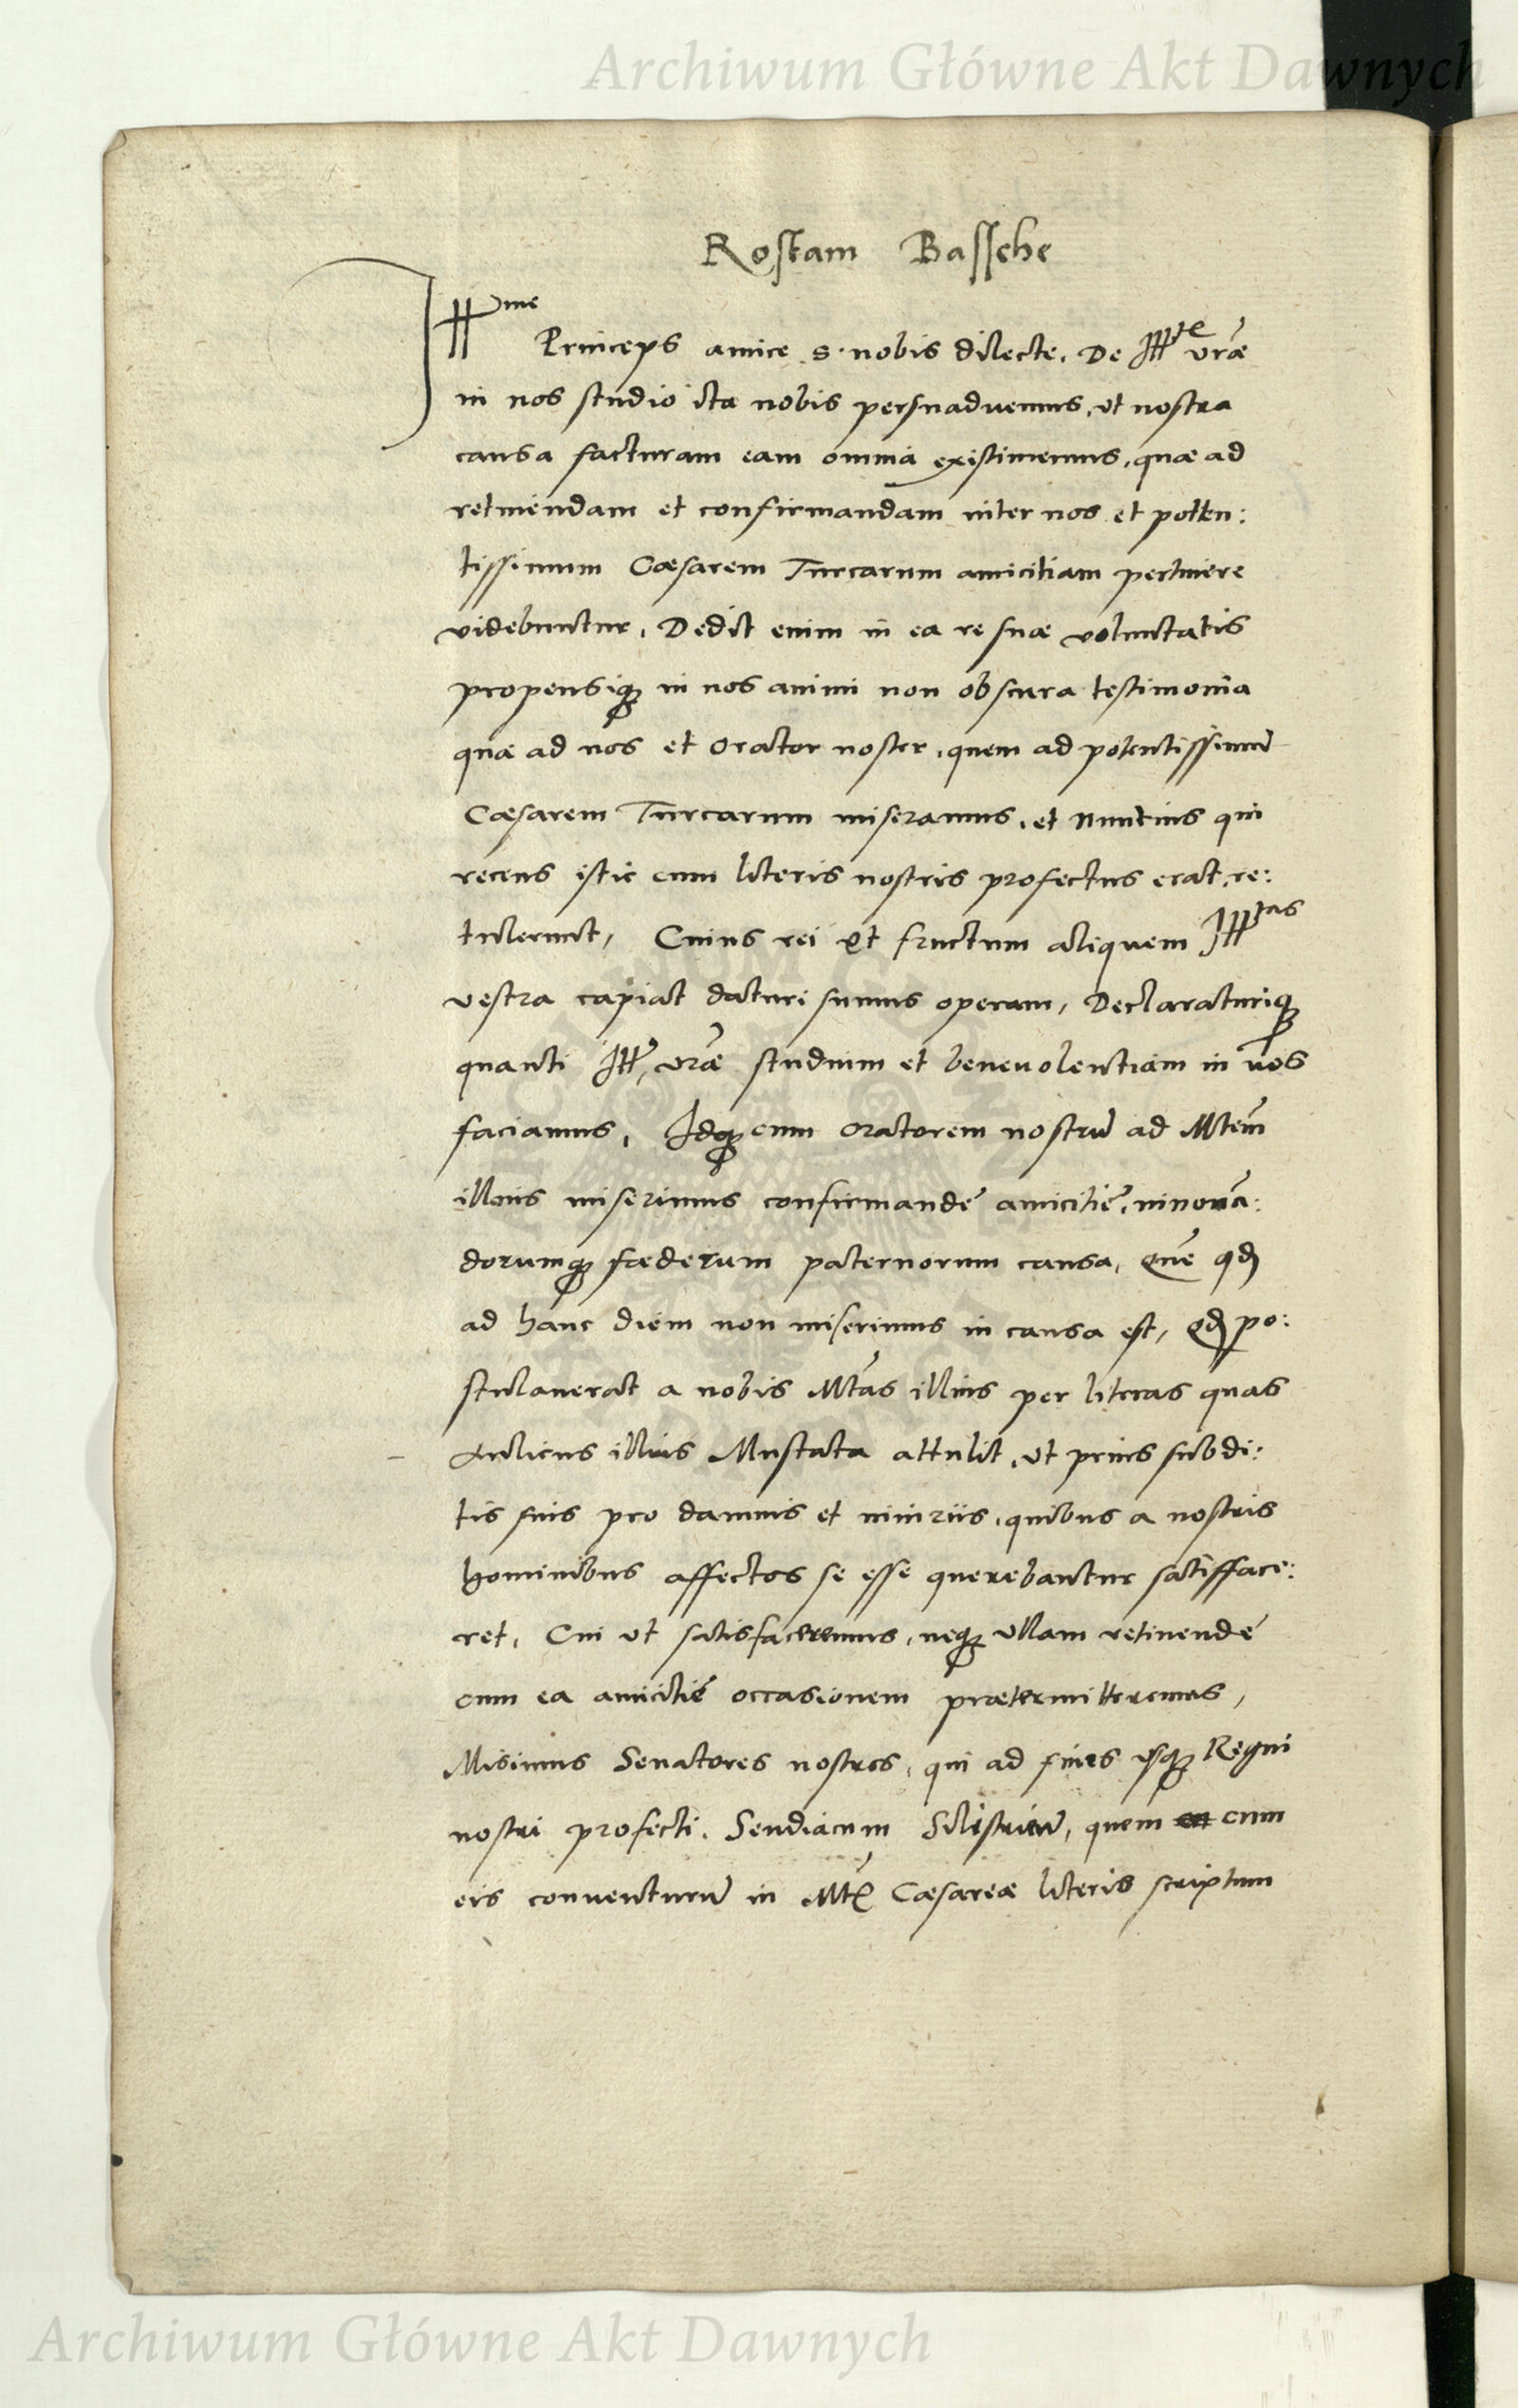 Archiwum Główne Akt Dawnych
Rostam Bassche
Illme Princeps amice s. nobis dilecte. De Illte vrae
in nos studio ita nobis persuadvemus, ut nostra
causa facturam eam omnia existimemus, quae ad
retinendam et confirmandam inter nos et poten:
tissimum Caesarem Turcarum amicitiam pertinere
videbuntur. Dedit enim in ea re suae voluntatis
propensiq; in nos animi non obscura testimonia
quae ad nos et orator noster, quem ad potentissimū
Caesarem Turcarum miseramus, et nuntius qui
recens istic cum literis nostris profectus erat, re:
tulerunt, Cuius rei ut fructum aliquem Illtas
vestra capiat daturi sumus operam, Declaraturiq;
quanti Ill. vrae studium et benevolentiam in nos
faciamus, Idq; cum oratorem nostrū ad Mtem
illius miserimus confirmandę amicitię, innouā:
dorumq; faederum paternorum causa, Quē qd
ad hanc diem non miserimus in causa est, qd po:
stulauerat a nobis Mtas illius per literas quas
Aulicus illius Mustafa attulit, ut prius subdi:
tis suis pro damnis et iniuriis, quibus a nostris
hominibus affectos se esse querebantur satisface:
ret, Cui ut satisfaceremus, neq; ullam retinendę
cum ea amicitię occasionem praetermitteremus,
Misimus Senatores nostros, qui ad fines usq; Regni
nostri profecti, Sendiacum Silistrien, quem cum
eis conventurū in Mtis Caesareae literis scriptum
Archiwum Główne Akt Dawnych